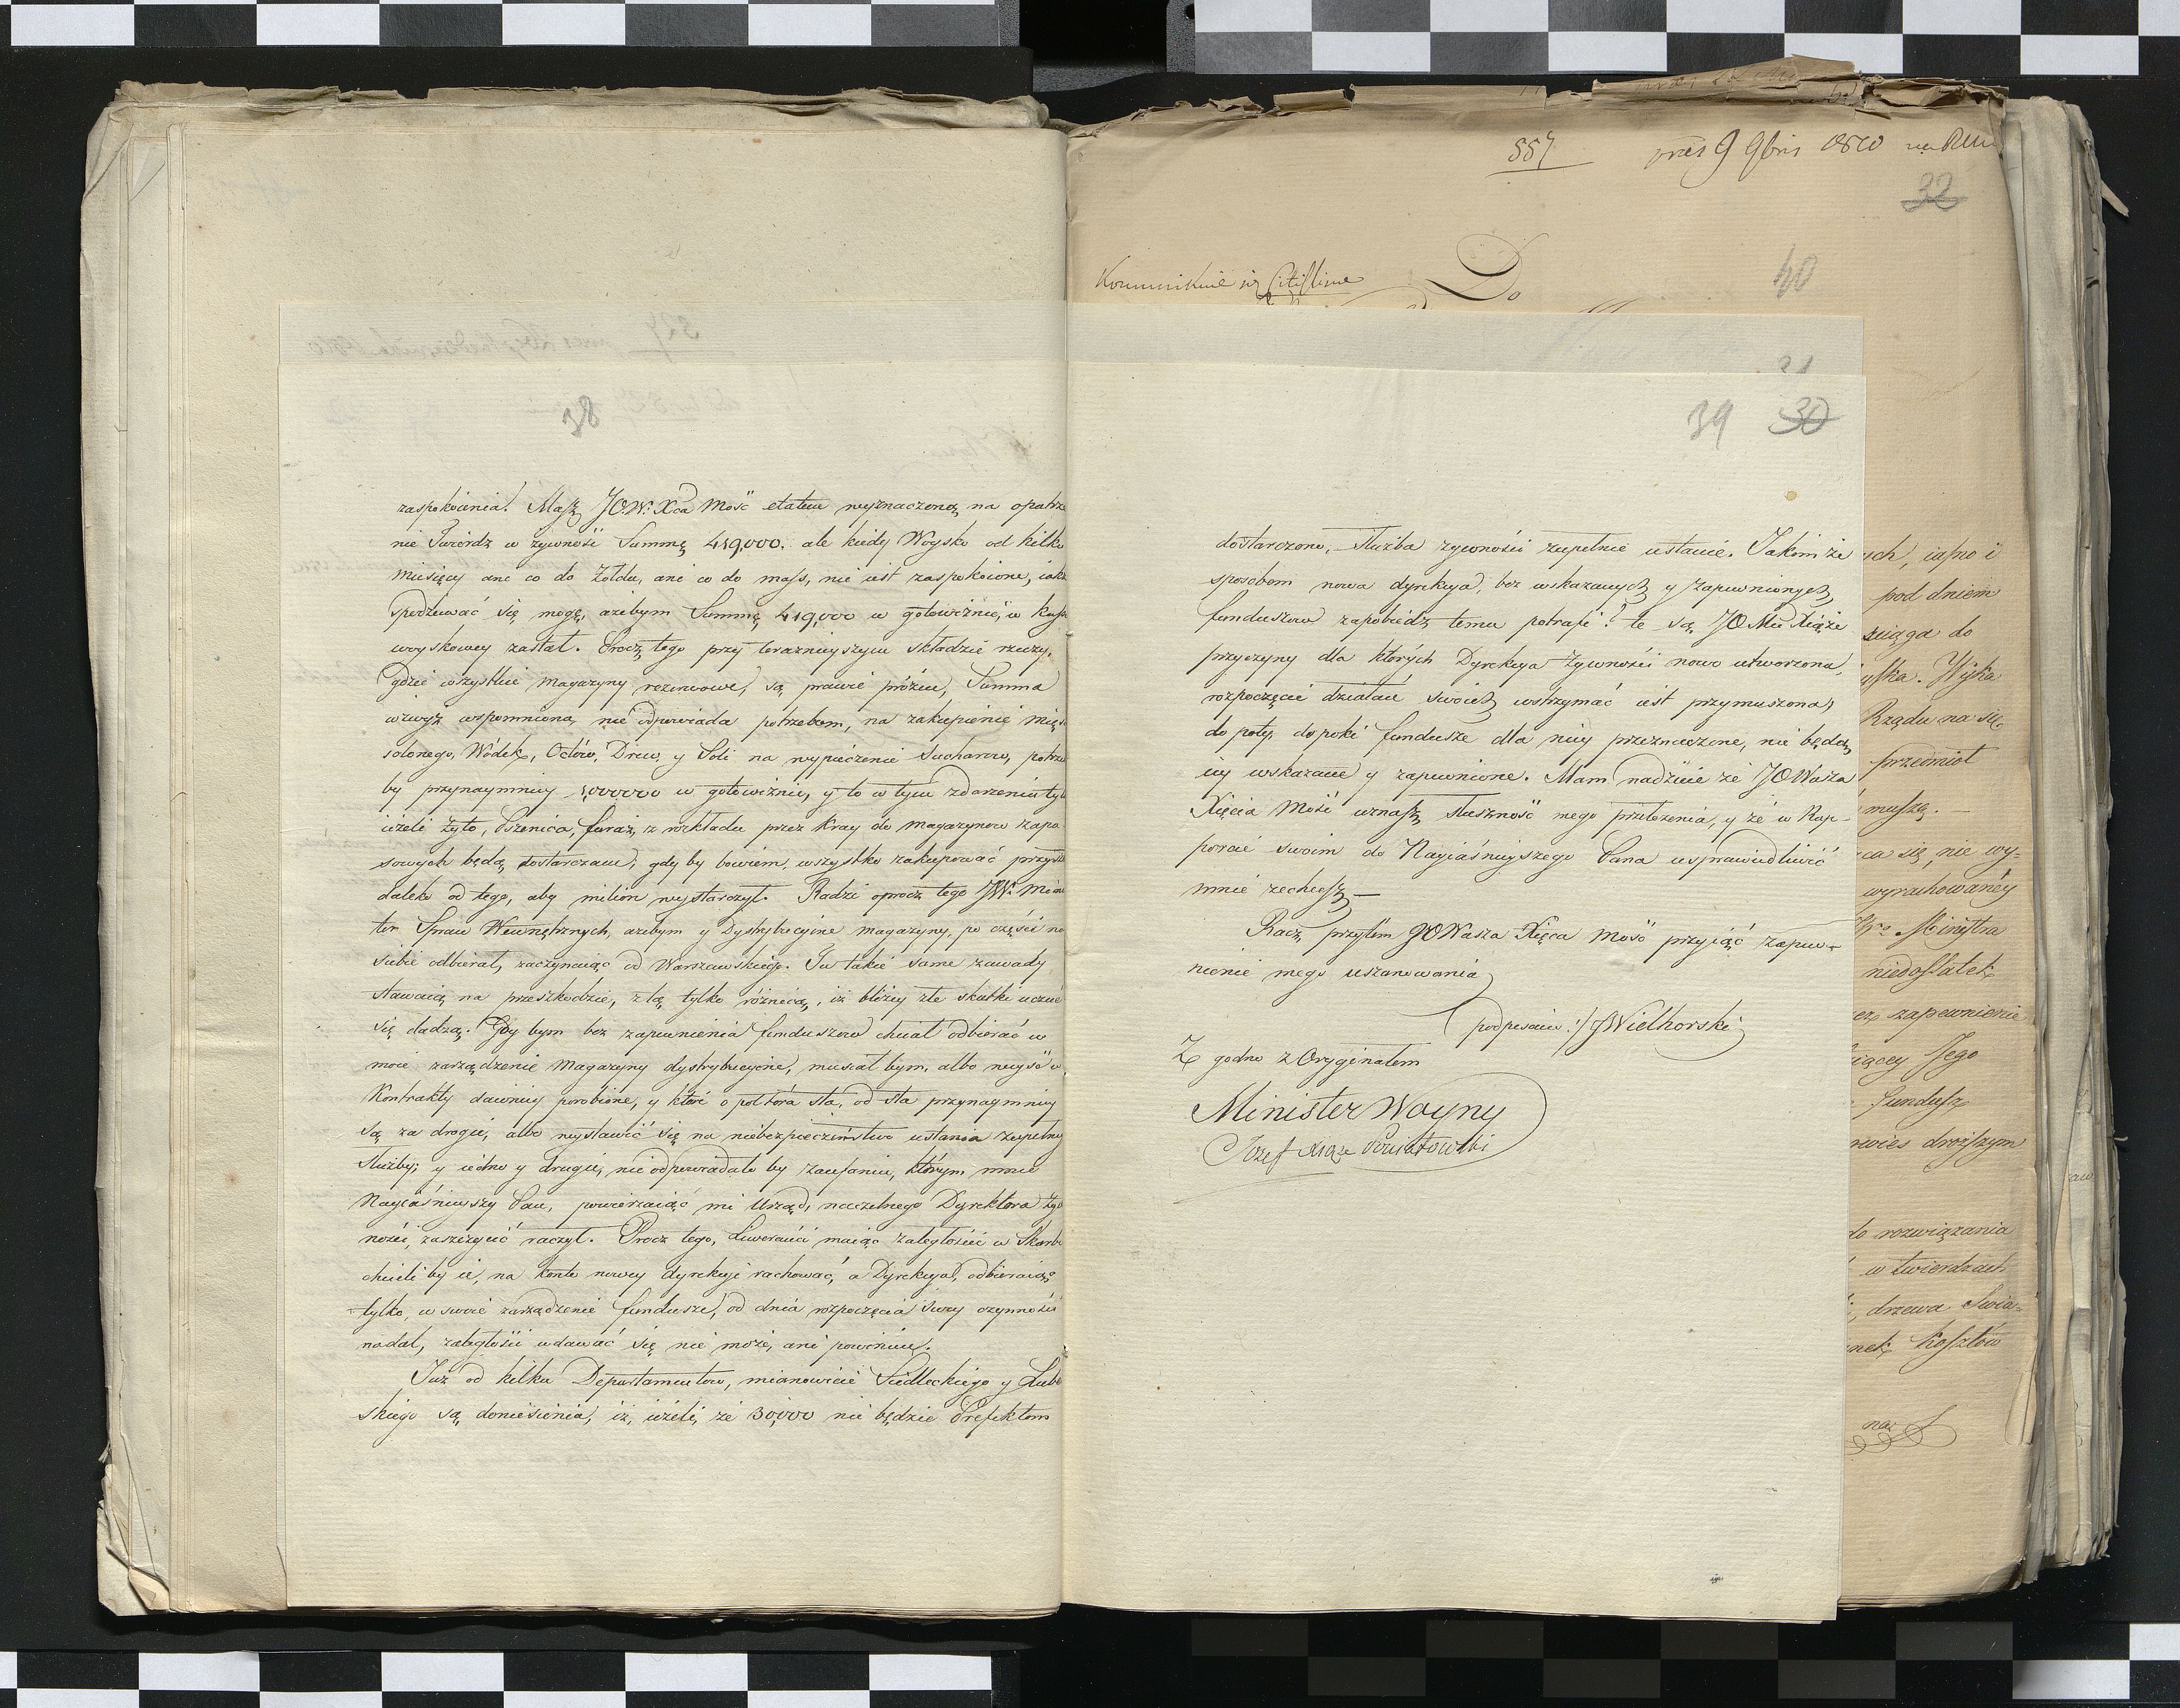 38
zaspokoienia. Masz JO.W. Xca Mość etatem wyznaczoną na opatrze
nie Twierdz w żywność Summę 419,000. ale kiedy Woysko od kilku
miesięcy ani co do żołdu, ani co do mass, nie iest zaspokoione, iak
spodziewać się mogę, ażebym Summę 419,000 w gotowiznie, w kass
woyskowey zastał. Procz tego przy teraznieyszym składzie rzeczy,
gdzie wszystkie magazyny rezerwowe, są prawie próżne, Summa
wzwyż wspomniona, nie odpowiada potrzebom, na zakupienie mięs
solonego, Wódek, Octów, Drew, y Soli na wypieczenie Sucharow, potrze
by przynaymniey 1,000000 w gotowiznie, y to w tym zdarzeniu tyl
ieżeli żyto, Pszenica, furaż, z rozkładu przez Kray do magazynow zapa
sowych będą dostarczane, gdy by bowiem, wszystko zakupować przysz
daleko od tego, aby milion wystarczył. Radzi oprocz tego JW. Minis
ter Spraw Wewnętrznych, ażebym y Dystrybucyine magazyny, po części na
siebie odbierał, zaczynaiąc od Warszawskiego. Tu takie same zawady
stawaią na przeszkodzie, z tą tylko różnicą, iż bliżey złe skutki uczuć
się dadzą. Gdy bym bez zapewnienia funduszow chciał odbierać w
moie zarządzenie Magazyny dystrybucyine, musiał bym, albo weyść w
Kontrakty dawniey porobione, y które o półtora sta, od sta przynaymniey
są za drogie, albo wystawić się na niebezpieczeństwo ustania zupełney
służby; y iedno y drugie, nie odpowiadało by zaufaniu, którym mnie
Nayiaśnieyszy Pan, powierzaiąc mi Urząd, naczelnego Dyrektora Ży
wności, zaszczycić raczył. Procz tego, Liweranci maiąc zaległości w Skarb
chcieli by ie, na konto nowey dyrekcyi rachować, a Dyrekcya, odbieraiąc
tylko, w swoie zarządzenie fundusze, od dnia rozpoczęcia swey czynności
nadal, zaległości wdawać się nie może, ani powinna.
Już od kilku Departamentow, mianowicie Siedleckiego y Lubel
skiego są doniesienia, iż, ieżeli, ze 30,000 nie będzie Prefektom
557
9 9bris 1810
32
Do
40
31
39 30
dostarczone, Służba żywności zupełnie ustanie. Jakim że
sposobem nowa dyrekcya, bez wskazanych y zapewnionych
funduszow zapobiedz temu potrafi? te są JO Mci Xiąże
przyczyny dla których Dyrekcya Żywności nowo utworzona,
rozpoczęcie działań swoich wstrzymać iest przymuszona,
do poty, dopoki fundusze dla niey przeznaczone, nie będą
iey wskazane y zapewnione. Mam nadzieie że JO Wasza
Xięcia Mość uznasz słuszność mego przełożenia, y że w Rap-
porcie swoim do Nayiaśnieyszego Pana usprawiedliwić
mnie zechcesz —
Racz przytem JO Wasza Xięca Mość przyiąć zapew-
nienie mego uszanowania
(podpisano :/ J Wielhorski
Z godno z Oryginałem
Minister Woyny
Jozef Xiąże Poniatowski
ych, iasno i
pod dniem
ściąga do
Rządu na się
przedmiot
muszę. —
ca się, nie wy=
wyrachowaney
Ministra
niedostatek
zapewnienie
iącey Jego
fundusz
droższym
do rozwiązania
w twierdzach
drzewa
Kosztów